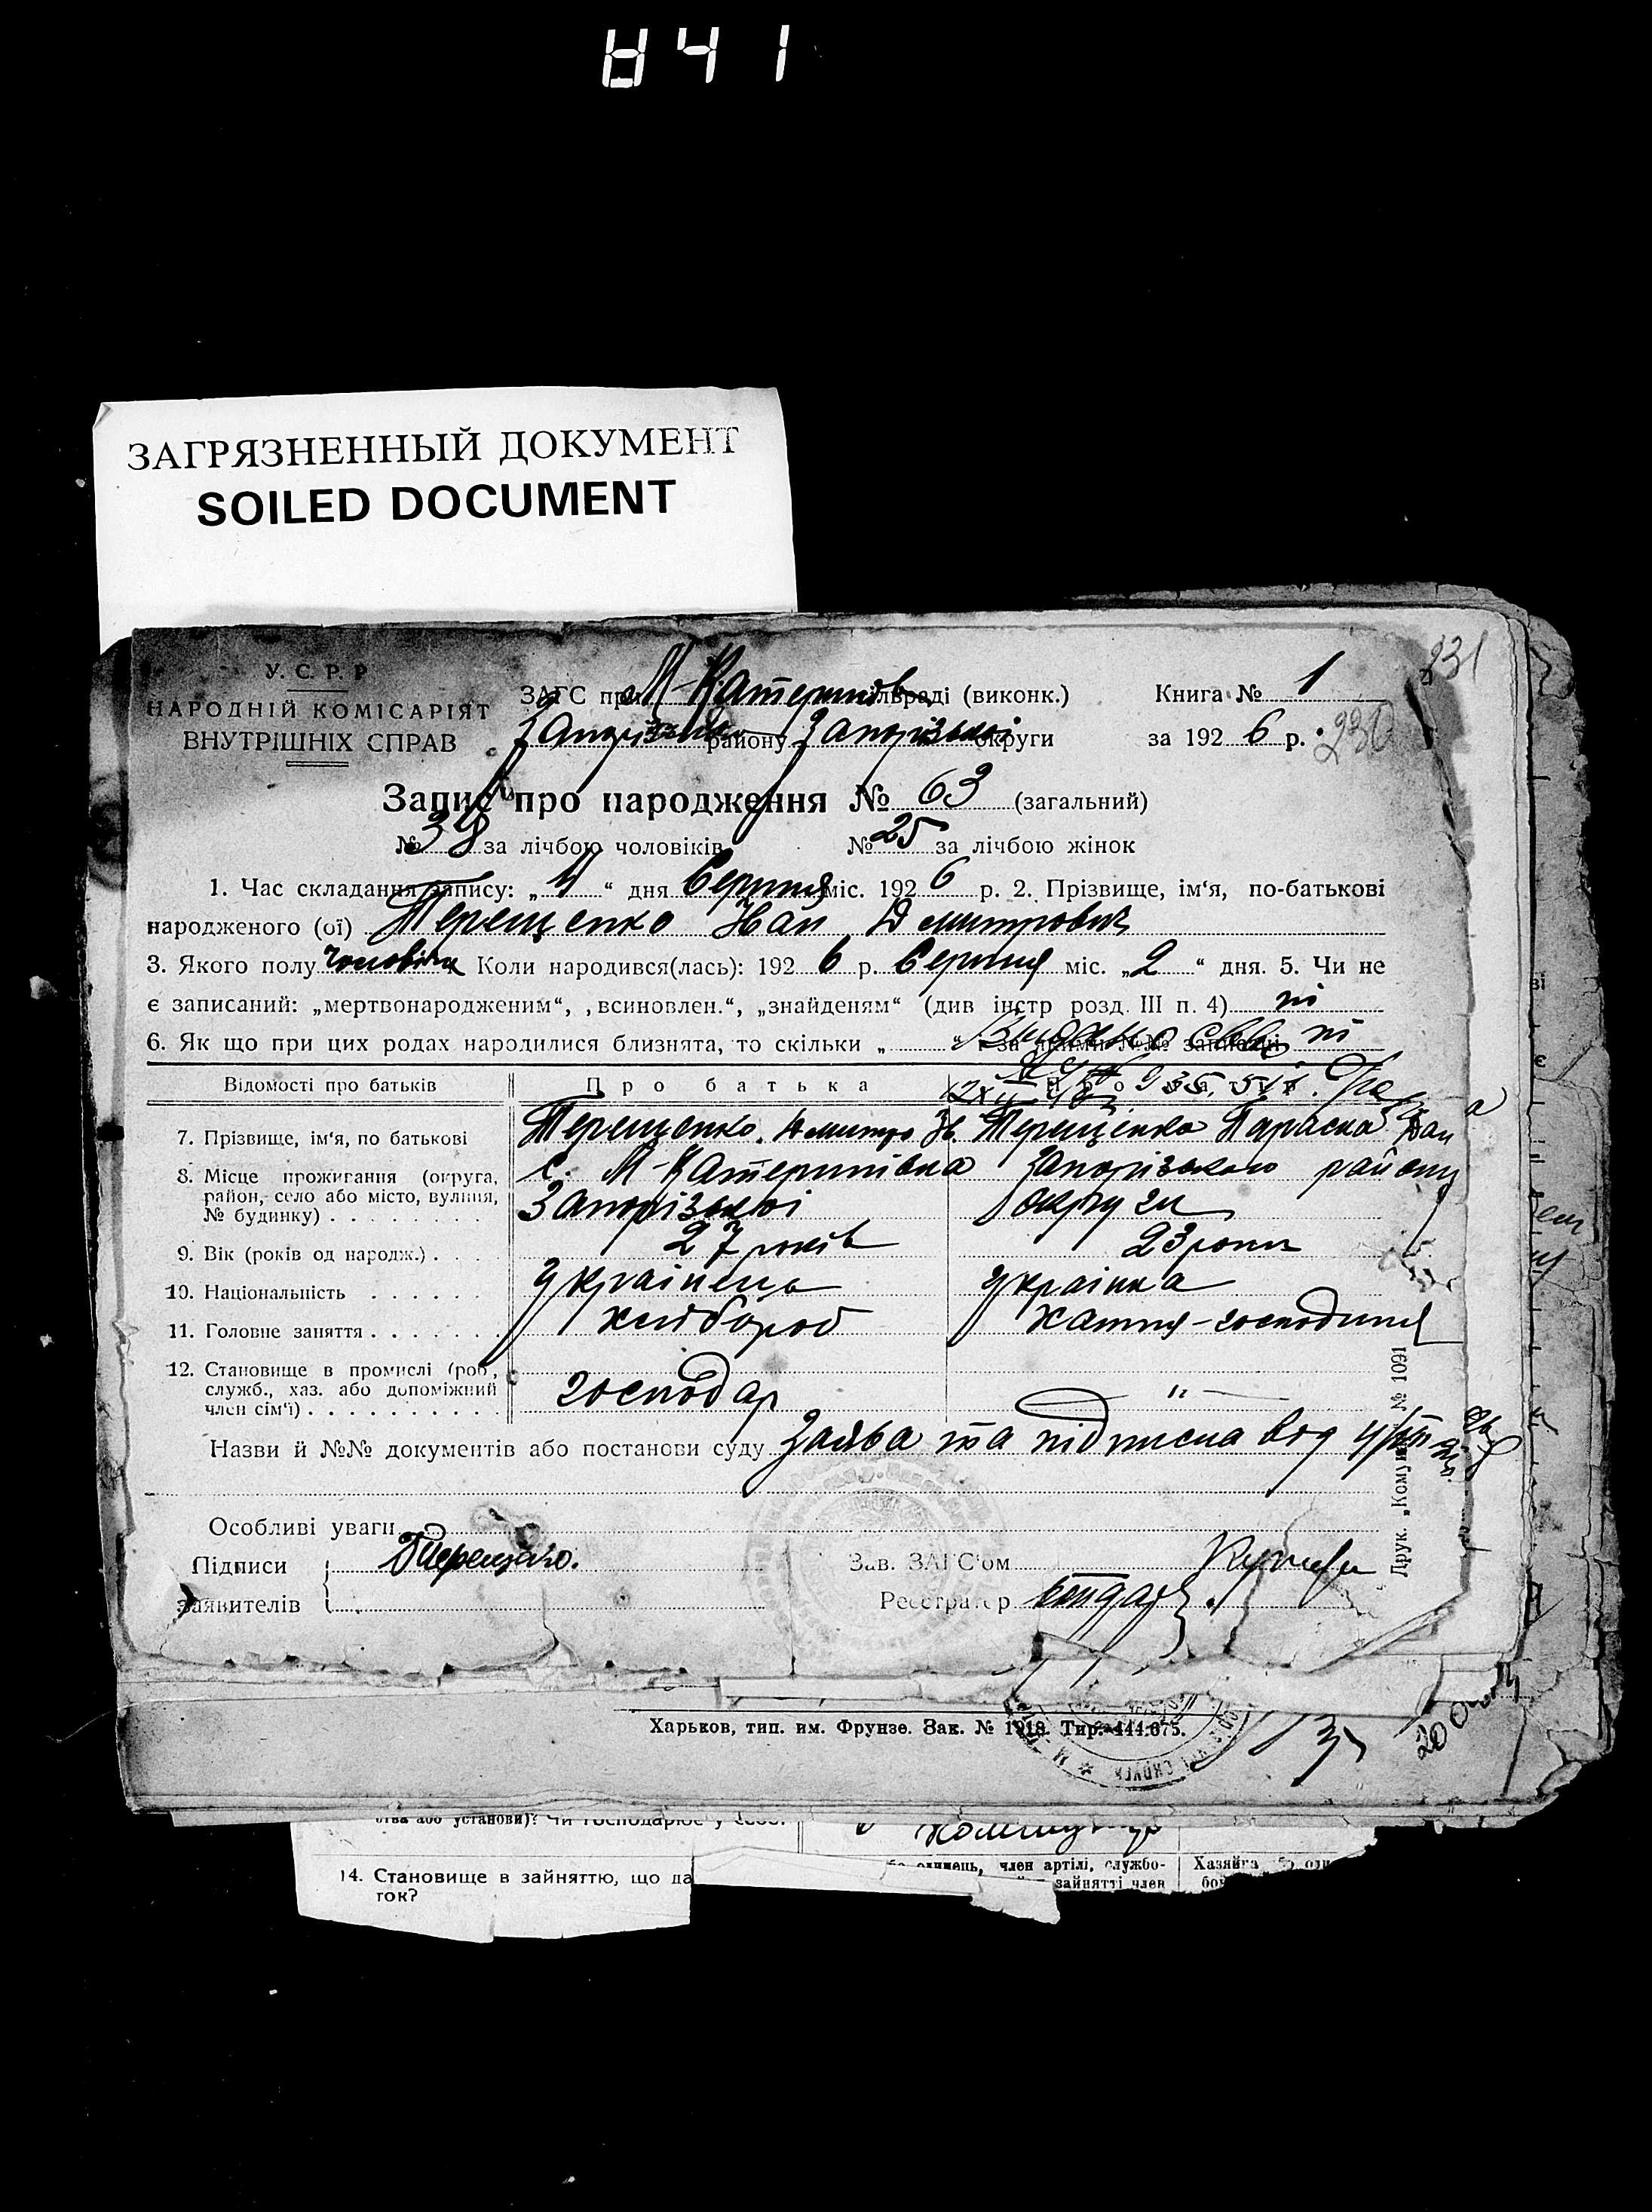 841
ЗАГРЯЗНЕННЫЙ ДОКУМЕНТ
SOILED DOCUMENT
231
У. С. Р. Р
НАРОДНІЙ КОМІСАРІЯТ
ВНУТРІШНІХ СПРАВ
ЗАГС при М-Катеринов. сільраді (виконк.) Книга № 1
Запорізьк. району Запорізької округи за 1926 р. 230
Запис про народження № 63 (загальний)
№ 38 за лічбою чоловіків № 25 за лічбою жінок
1. Час складання запису: „4“ дня Серпня міс. 1926 р. 2. Прізвище, ім‘я, по-батькові
народженого (ої) Терещенко Іван Дмитрович
3. Якого полу чоловіча Коли народився(лась): 1926 р. Серпня міс. „2“ дня. 5. Чи не
є записаний: „мертвонародженим“, „всиновлен.“, „знайденям“ (див інстр розд. III п. 4) ні
6. Як що при цих родах народилися близнята, то скільки „ “ за якими №№ записані ні
Відомості про батьків Про батька Про матір
7. Прізвище, ім‘я, по батькові Терещенко Дмитро Ів. Терещенко Параска
8. Місце прожигання (округа, район, село або місто, вулиця, № будинку) с. М-Катеринівка Запорізького району
Запорізької округи
9. Вік (років од народж.) 27 років 23 роки
10. Національність Українець Українка
11. Головне заняття хлібороб хатня-господиня
12. Становище в промислі (роб., служб., хаз. або допоміжний член сім‘ї) господар „
Назви й №№ документів або постанови суду Заява та підписка від 4/VIII
Особливі уваги
Підписи заявителів Д Терещенко.
Зав. ЗАГС‘ом
Реєстратор Бондар
Друк. „Комунар“ № 1091
Харьков, тип. им. Фрунзе. Зак. № 1918. Тир. 444.675.
ства або установи)? Чи господарює у себе?
14. Становище в зайняттю, що да
ток?
одинець, член артілі, службо-
зайнятті член